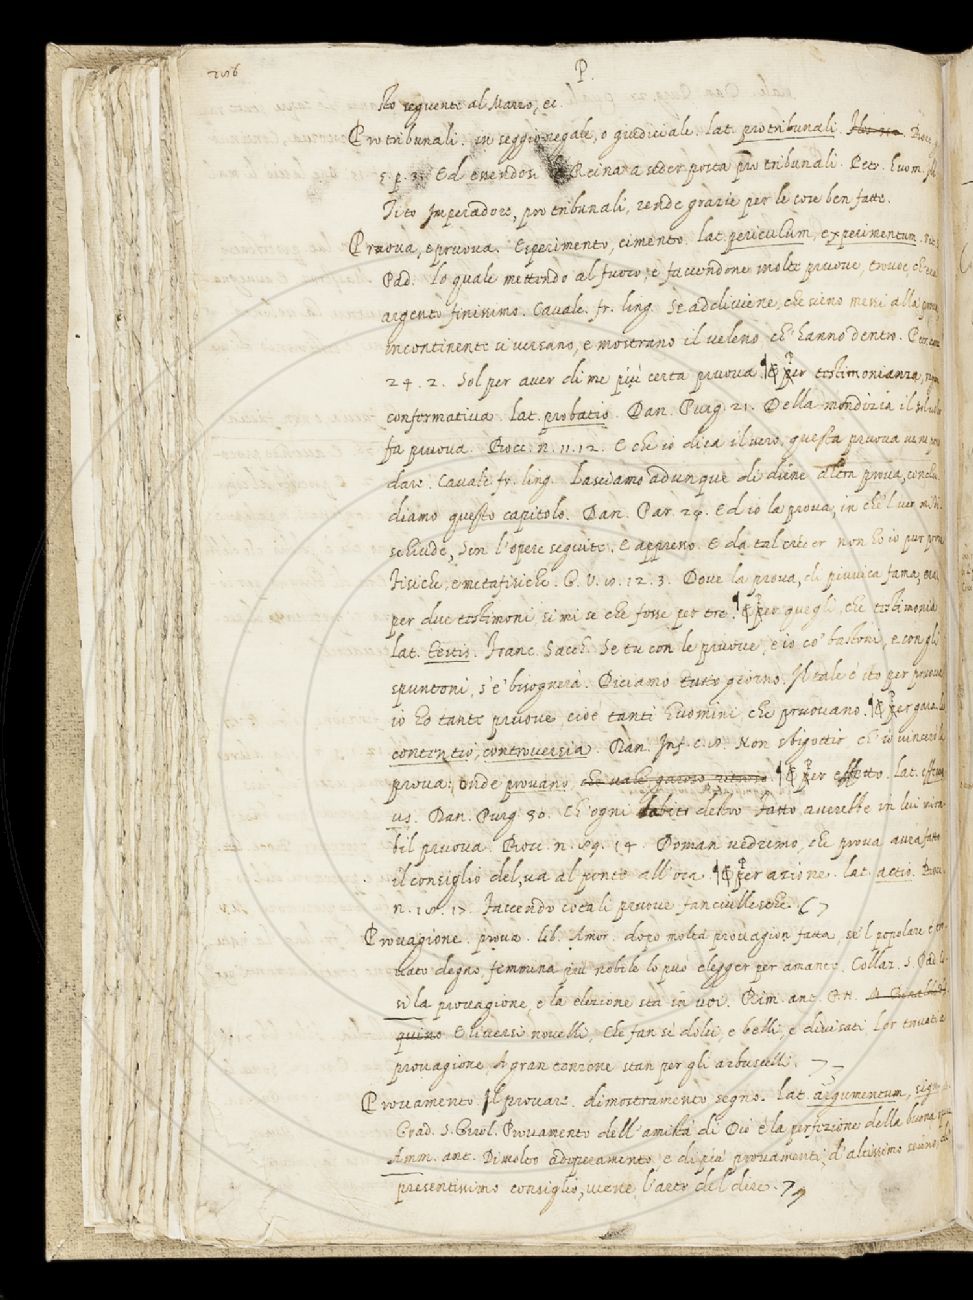 P.
seguente al Marzo, ec.
Pro tribunali. in seggio regale, o giudiciale. lat. pro tribunali.
5. p. 3. Ed essendosi Reina a seder posta pro tribunali. Petr. huom. ill.
Tito Imperadore, pro tribunali, rende grazie per le cose ben fatte.
Pruova, e pruova. Esperimento, cimento. lat. periculum, experimentum.
Pad. lo quale mettendo al fuoco, e faccendone molte pruove, trovoe, ch'era
argento finissimo. Cavalc. fr. ling. Se addiviene, che sieno messi alla pruova
incontinente si versano, e mostrano il veleno ch'hanno dentro. Petr. canz.
24. 2. Sol per aver di me più certa pruova ¶ per testimonianza,
confermativa. lat. probatio. Dan. Purg. 21. Della mondizia il sol voler
fa pruova. Bocc. n. 11. 12. E che io dica il vero, questa pruova ve ne posso
dare. Cavalc. fr. ling. Lasciamo adunque di dirne altra prova, conclu-
diamo questo capitolo. Dan. Par. 24. Ed io la prova, in che 'l ver mi si
schiude, son l'opere seguite. E appresso. E da tal creder non ho io pur prove
Fisiche, e metafisiche. G. V. 10. 12. 3. Dove la prova, di piuvica fama, era
per due testimoni, si mise che fosse per tre. ¶ per quegli, che testimonia
lat. testis. Franc. Sacch. Se tu con le pruove, e io co' bastoni, e con gli
spuntoni, s'e' bisognerà. Diciamo tutto giorno. Il tale è ito per pruova
io ho tante pruove, cioè tanti huomini, che pruovano. ¶ per gara. lat.
contentio, controversia. Dan. Inf. c. 8. Non sbigottir, ch'io vincerò la
prova: onde provano, che vale garoso, ritroso. ¶ per effetto. lat. effect-
us. Dan. Purg. 30. Ch'ogni abito destro fatto averebbe in lui mira-
bil pruova. Bocc. n. 89. 14. Doman vedremo, che prova avrà fatto
il consiglio del, va al ponte all'oca. ¶ per azione. lat. actio. Bocc.
n. 18. 17. Faccendo cotali pruove fanciullesche.
Provagione. prova. lib. Amor. dopo molta provagion fatta, se 'l popolare è tro-
vato degno, femmina più nobile lo può elegger per amante. Collaz. S. Pad. Co-
sì la provagione, e la elezione sta in voi. Rim. ant. P. N.
E li versi novelli, che fan sì dolci, e belli, e divisati lor trovati a
provagione, A gran tenzone stan per gli arbuscelli.
Provamento. Il provare. dimostramento segno. lat. argumentum, signum
Grad. S. Girol. Provamento dell'amistà di Dio è la perfezione della buona opera
Amm. ant. Di molto adoperamento, e di più provamenti, d'altissimo senno, di
presentissimo consiglio, viene l'arte del dire.